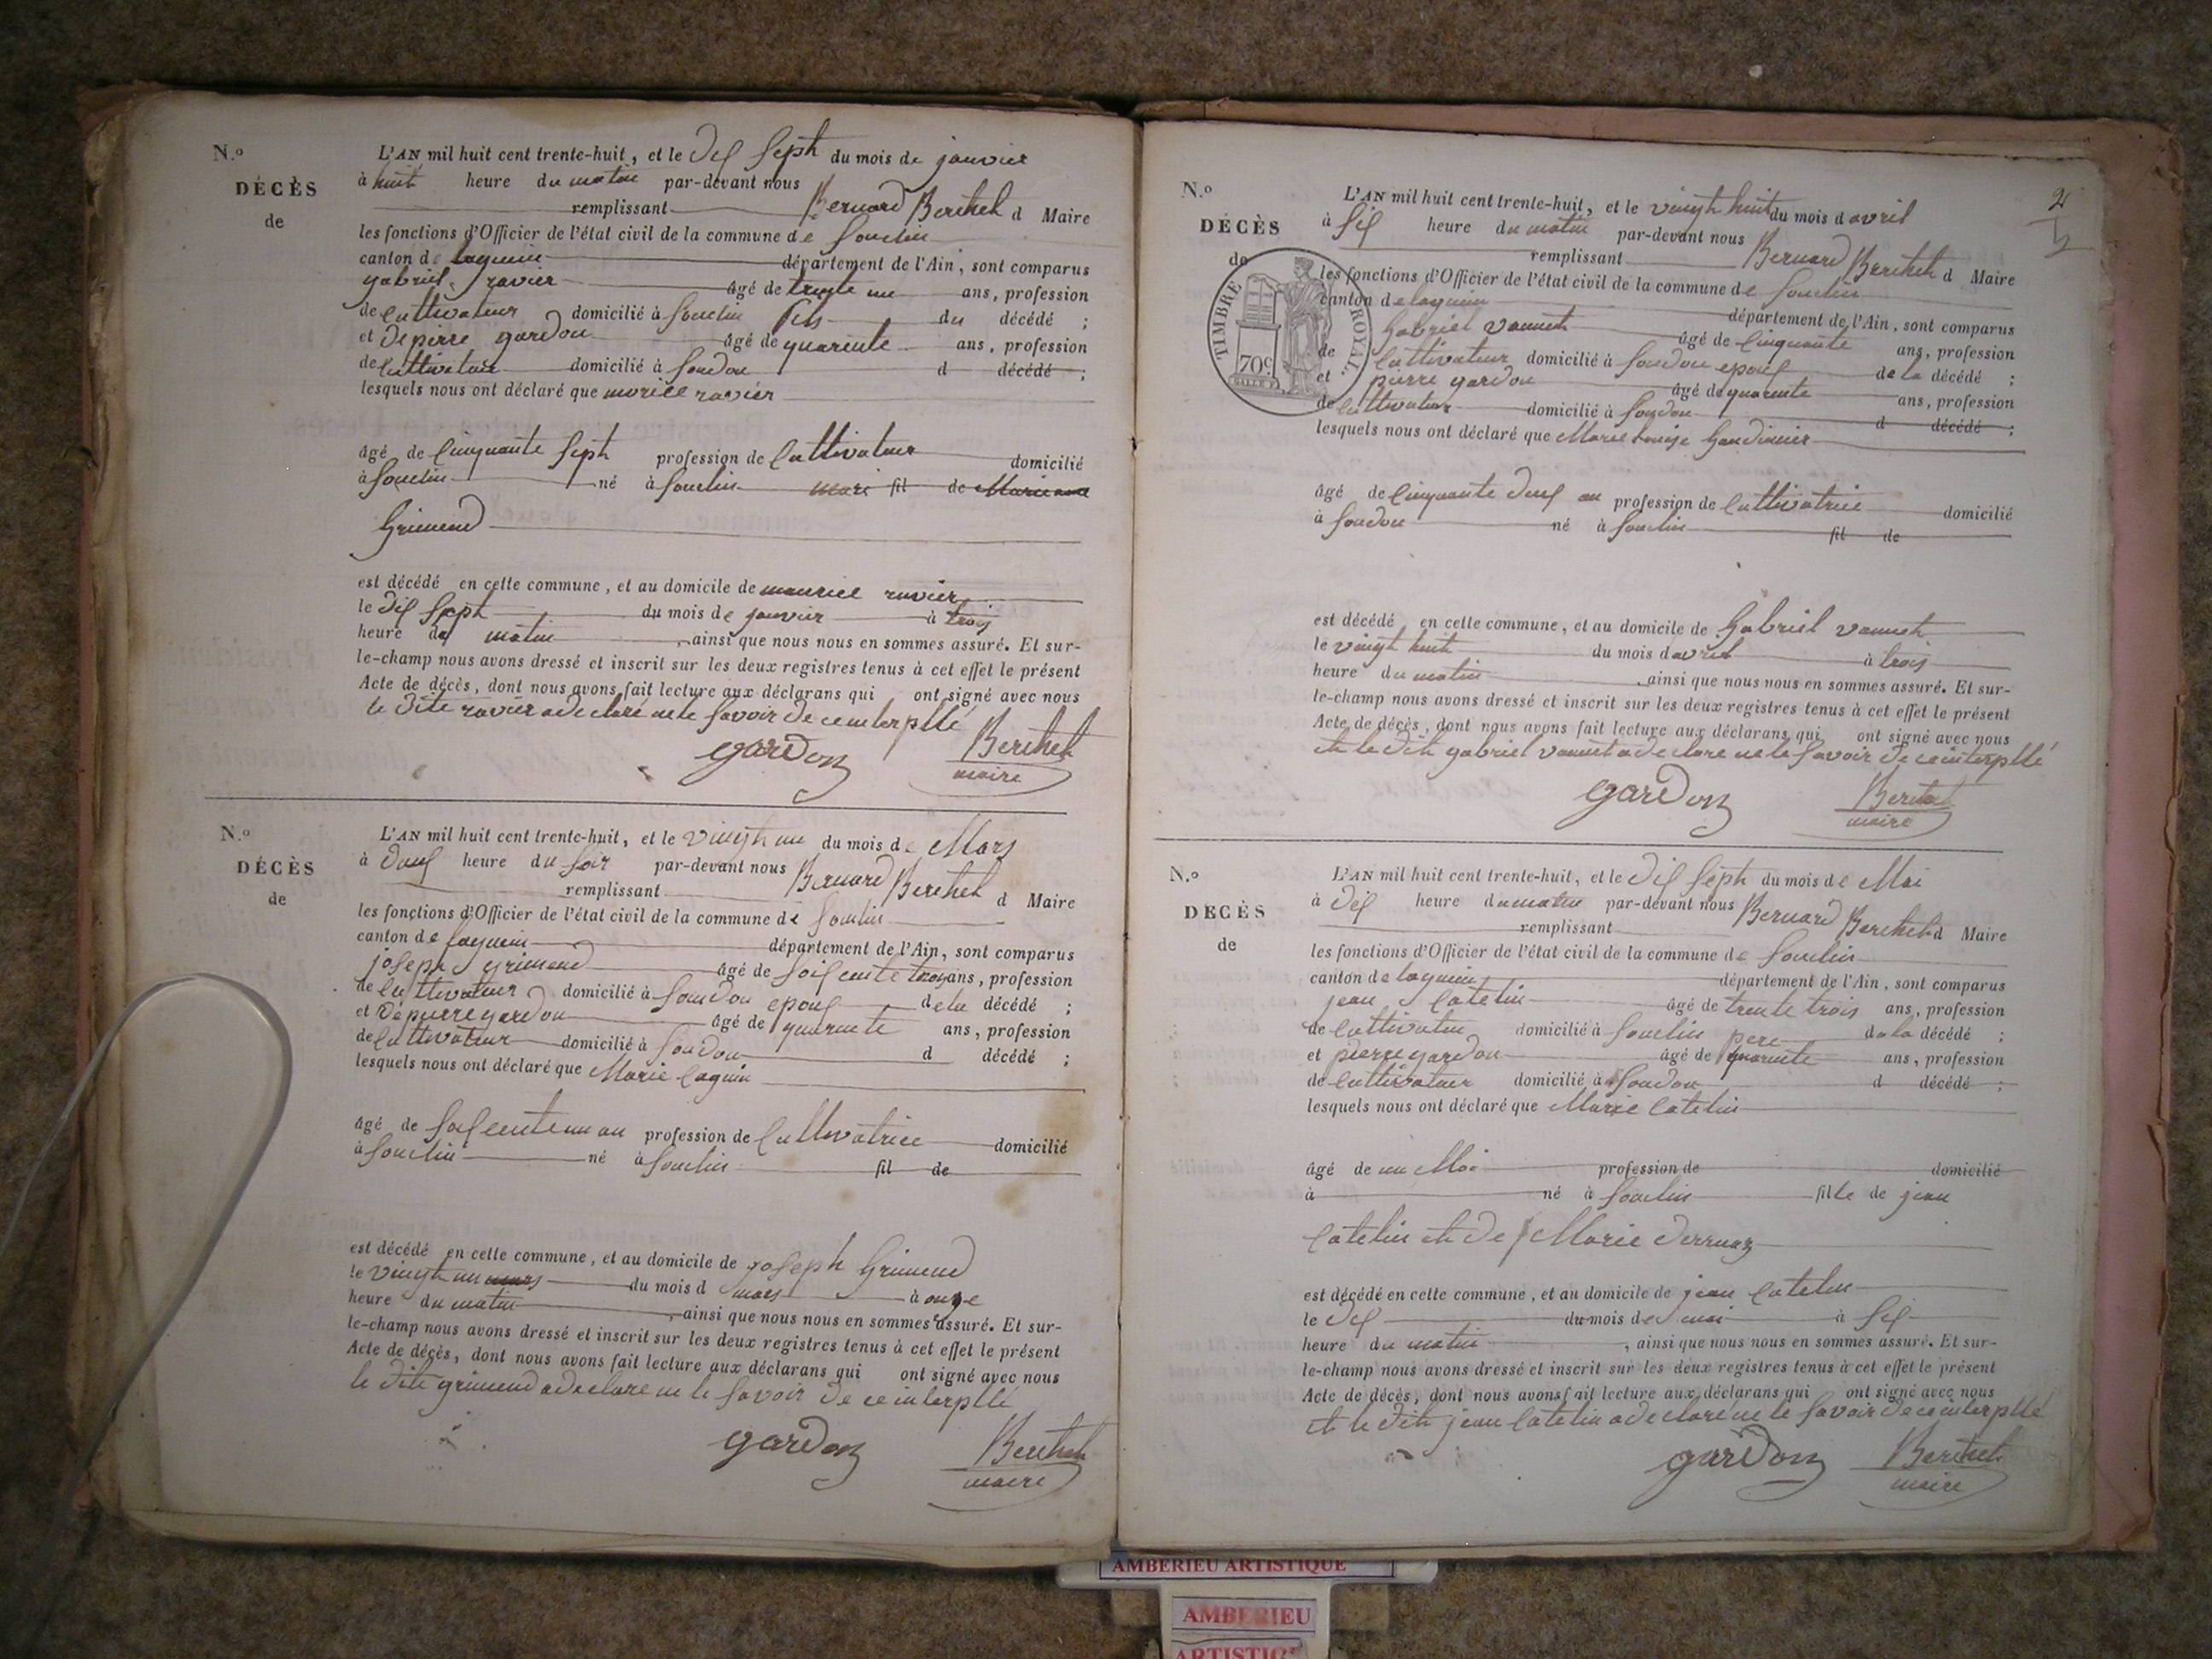 N.º
DÉCÈS
de
L'AN mil huit cent trente-huit, et le dix sept du mois de janvier
à huit heure du matin par-devant nous Bernard Berthet d Maire
remplissant
les fonctions d'Officier de l'état civil de la commune de Souclin
canton de lagnieu département de l'Ain, sont comparus
gabriel ravier âgé de trente un ans, profession
de Cultivateur domicilié à Souclin fils du décédé ;
et de pierre gardon âgé de quarente ans, profession
de Cultivateur domicilié à Soudon d décédé ;
lesquels nous ont déclaré que ravier
âgé de Cinquante Sept profession de Cultivateur domicilié
à Souclin né à Souclin mari fil de
Grimend
est décédé en cette commune, et au domicile de maurice ravier
le dix Sept du mois de janvier à trois
heure du matin, ainsi que nous nous en sommes assuré. Et sur-
le-champ nous avons dressé et inscrit sur les deux registres tenus à cet effet le présent
Acte de décès, dont nous avons fait lecture aux déclarans qui ont signé avec nous
le dite ravier a declaré ne le Savoir de ce interpllé
gardon Berthet
maire
N.º
DÉCÈS
de
L'AN mil huit cent trente-huit, et le vingt un du mois de Mars
à deux heure du soir par-devant nous Bernard Berthet d Maire
remplissant
les fonctions d'Officier de l'état civil de la commune de Souclin
canton de lagnieu département de l'Ain, sont comparus
joseph grimend âgé de Soixente trois ans, profession
de Cultivateur domicilié à Soudon epoux de la décédé ;
et de pierre gardon âgé de quarente ans, profession
de Cultivateur domicilié à Soudon d décédé ;
lesquels nous ont déclaré que Marie
âgé de Soixcente un an profession de Cultivatrice domicilié
à Souclin né à Souclin fil de
est décédé en cette commune, et au domicile de joseph Grimend
le vingt un mars du mois d mars à onze
heure du matin, ainsi que nous nous en sommes assuré. Et sur-
le-champ nous avons dressé et inscrit sur les deux registres tenus à cet effet le présent
Acte de décès, dont nous avons fait lecture aux déclarans qui ont signé avec nous
le dite grimend a declare ne le Savoir de ce interpllé
gardon Berthet
maire
2
N.º
DÉCÈS
de
TIMBRE ROYAL.
70 c.
L'AN mil huit cent trente-huit, et le vingt huit du mois d avril
à Six heure du matin par-devant nous Bernard Berthet d Maire
remplissant
les fonctions d'Officier de l'état civil de la commune de Souclin
canton de lagnieu département de l'Ain, sont comparus
Gabriel vannet âgé de Cinquante ans, profession
de Cultivateur domicilié à Soudon epoux de la décédé ;
et pierre gardon âgé de quarente ans, profession
de Cultivateur domicilié à Soudon d décédé ;
lesquels nous ont déclaré que Marie Louise
âgé de Cinquante deux an profession de Cultivatrice domicilié
à Soudon né à Souclin fil de
est décédé en cette commune, et au domicile de Gabriel vannet
le vingt huit du mois d avril à trois
heure du matin, ainsi que nous nous en sommes assuré. Et sur-
le-champ nous avons dressé et inscrit sur les deux registres tenus à cet effet le présent
Acte de décès, dont nous avons fait lecture aux déclarans qui ont signé avec nous
et le dit gabriel vannet a declare ne le Savoir de ce interpllé
gardon Berthet
maire
N.º
DECÈS
de
L'AN mil huit cent trente-huit, et le dix Sept du mois de Mai
à dix heure du matin par-devant nous Bernard Berthet d Maire
remplissant
les fonctions d'Officier de l'état civil de la commune de Souclin
canton de lagnieu département de l'Ain, sont comparus
jean Catelin âgé de trente trois ans, profession
de Cultivateur domicilié à Souclin pere de la décédé ;
et pierre gardon âgé de quarente ans, profession
de Cultivateur domicilié à Soudon d décédé ;
lesquels nous ont déclaré que Marie Catelin
âgé de un Moi profession de domicilié
à né à Souclin fille de jean
Catelin et de Marie
est décédé en cette commune, et au domicile de jean Catelin
le dix du mois de mai à Six
heure du matin, ainsi que nous nous en sommes assuré. Et sur-
le-champ nous avons dressé et inscrit sur les deux registres tenus à cet effet le présent
Acte de décès, dont nous avons fait lecture aux déclarans qui ont signé avec nous
et le dit jean Catelin a declaré ne le Savoir de ce interpllé
gardon Berthet
maire
AMBERIEU ARTISTIQUE
AMBERIEU
ARTISTIQUE